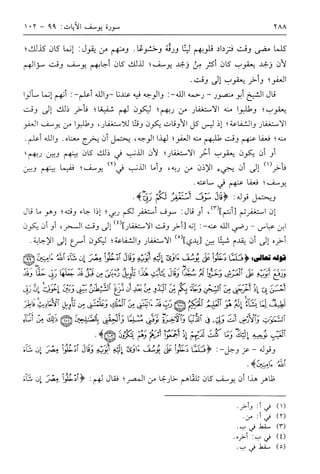 ٢٨٨ سورة يوسف الآيات: ٩٩ - ١٠٢
كلما مضى وقت فتزداد قلوبهم لينًا ورقَّة وخشوعًا. ومنهم من يقول: إنما كان كذلك؛
لأن وَجْد يعقوب كان أكثر مِنْ وَجْد يوسف؛ لذلك كان أجابهم يوسف وقت سؤالهم
العفو؛ وأخر يعقوب إلى وقت.
قال الشيخ أبو منصور - رحمه الله -: والوجه فيه عندنا - والله أعلم -: أنهم إنما سألوا
يعقوب؛ وطلبوا منه الاستغفار من ربهم؛ ليكون لهم شفيعًا؛ فأخر ذلك إلى وقت
الاستغفار والشفاعة؛ إذ ليس كل الأوقات يكون وقتًا للاستغفار، وطلبوا من يوسف العفو
منه؛ فعفا عنهم وقت طلبهم منه العفو؛ لهذا الوجه، يحتمل أن يخرج معناه. والله أعلم.
أو أن يكون يعقوب أخّر الاستغفار؛ لأن الذنب في ذلك كان بينهم وبين ربهم؛
فأخر(١) إلى أن يجيء الإذن من ربه، وأما الذنب في(٢) يوسف؛ ففيما بينهم وبين
يوسف؛ فعفا عنهم في ساعته.
ويحتمل قوله: ﴿قَالَ سَوْفَ أَسْتَغْفِرُ لَكُمْ رَبِّيٓ﴾.
إن استغفرتم [أنتم](٣)، أو قال: سوف أستغفر لكم ربي؛ إذا جاء وقته؛ وهو ما قال
ابن عباس - رضي الله عنه -: إنه [أخر وقت الاستغفار](٤) إلى وقت السحر، أو أن يكون
أخره إلى أن يقدم شيئًا بين [يدي](٥) الاستغفار والشفاعة؛ ليكون أسرع إلى الإجابة.
قوله تعالى: ﴿فَلَمَّا دَخَلُوا عَلَىٰ يُوسُفَ ءَاوَىٰٓ إِلَيْهِ أَبَوَيْهِ وَقَالَ ٱدْخُلُوا مِصْرَ إِن شَآءَ ٱللَّهُ ءَامِنِينَ
وَرَفَعَ أَبَوَيْهِ عَلَى ٱلْعَرْشِ وَخَرُّوا لَهُۥ سُجَّدًا وَقَالَ يَٰٓأَبَتِ هَٰذَا تَأْوِيلُ رُءْيَٰىَ مِن قَبْلُ قَدْ جَعَلَهَا رَبِّى حَقًّا وَقَدْ
أَحْسَنَ بِىٓ إِذْ أَخْرَجَنِى مِنَ ٱلسِّجْنِ وَجَآءَ بِكُم مِّنَ ٱلْبَدْوِ مِنۢ بَعْدِ أَن نَّزَغَ ٱلشَّيْطَٰنُ بَيْنِى وَبَيْنَ إِخْوَتِىٓ إِنَّ رَبِّى
لَطِيفٌ لِّمَا يَشَآءُ إِنَّهُۥ هُوَ ٱلْعَلِيمُ ٱلْحَكِيمُ رَبِّ قَدْ ءَاتَيْتَنِى مِنَ ٱلْمُلْكِ وَعَلَّمْتَنِى مِن تَأْوِيلِ ٱلْأَحَادِيثِ فَاطِرَ
ٱلسَّمَٰوَٰتِ وَٱلْأَرْضِ أَنتَ وَلِىِّۦ فِى ٱلدُّنْيَا وَٱلْءَاخِرَةِ تَوَفَّنِى مُسْلِمًا وَأَلْحِقْنِى بِٱلصَّٰلِحِينَ ذَٰلِكَ مِنْ أَنۢبَآءِ
ٱلْغَيْبِ نُوحِيهِ إِلَيْكَ وَمَا كُنتَ لَدَيْهِمْ إِذْ أَجْمَعُوٓا أَمْرَهُمْ وَهُمْ يَمْكُرُونَ﴾.
وقوله - عز وجل -: ﴿فَلَمَّا دَخَلُوا عَلَىٰ يُوسُفَ ءَاوَىٰٓ إِلَيْهِ أَبَوَيْهِ وَقَالَ ٱدْخُلُوا مِصْرَ إِن شَآءَ
ٱللَّهُ ءَامِنِينَ﴾.
ظاهر هذا أن يوسف كان تلقاهم خارجًا من المصر؛ فقال لهم: ﴿ٱدْخُلُوا مِصْرَ إِن شَآءَ
(١) في أ: وأخر.
(٢) في أ: من.
(٣) سقط في ب.
(٤) في ب: أخره.
(٥) سقط في ب.